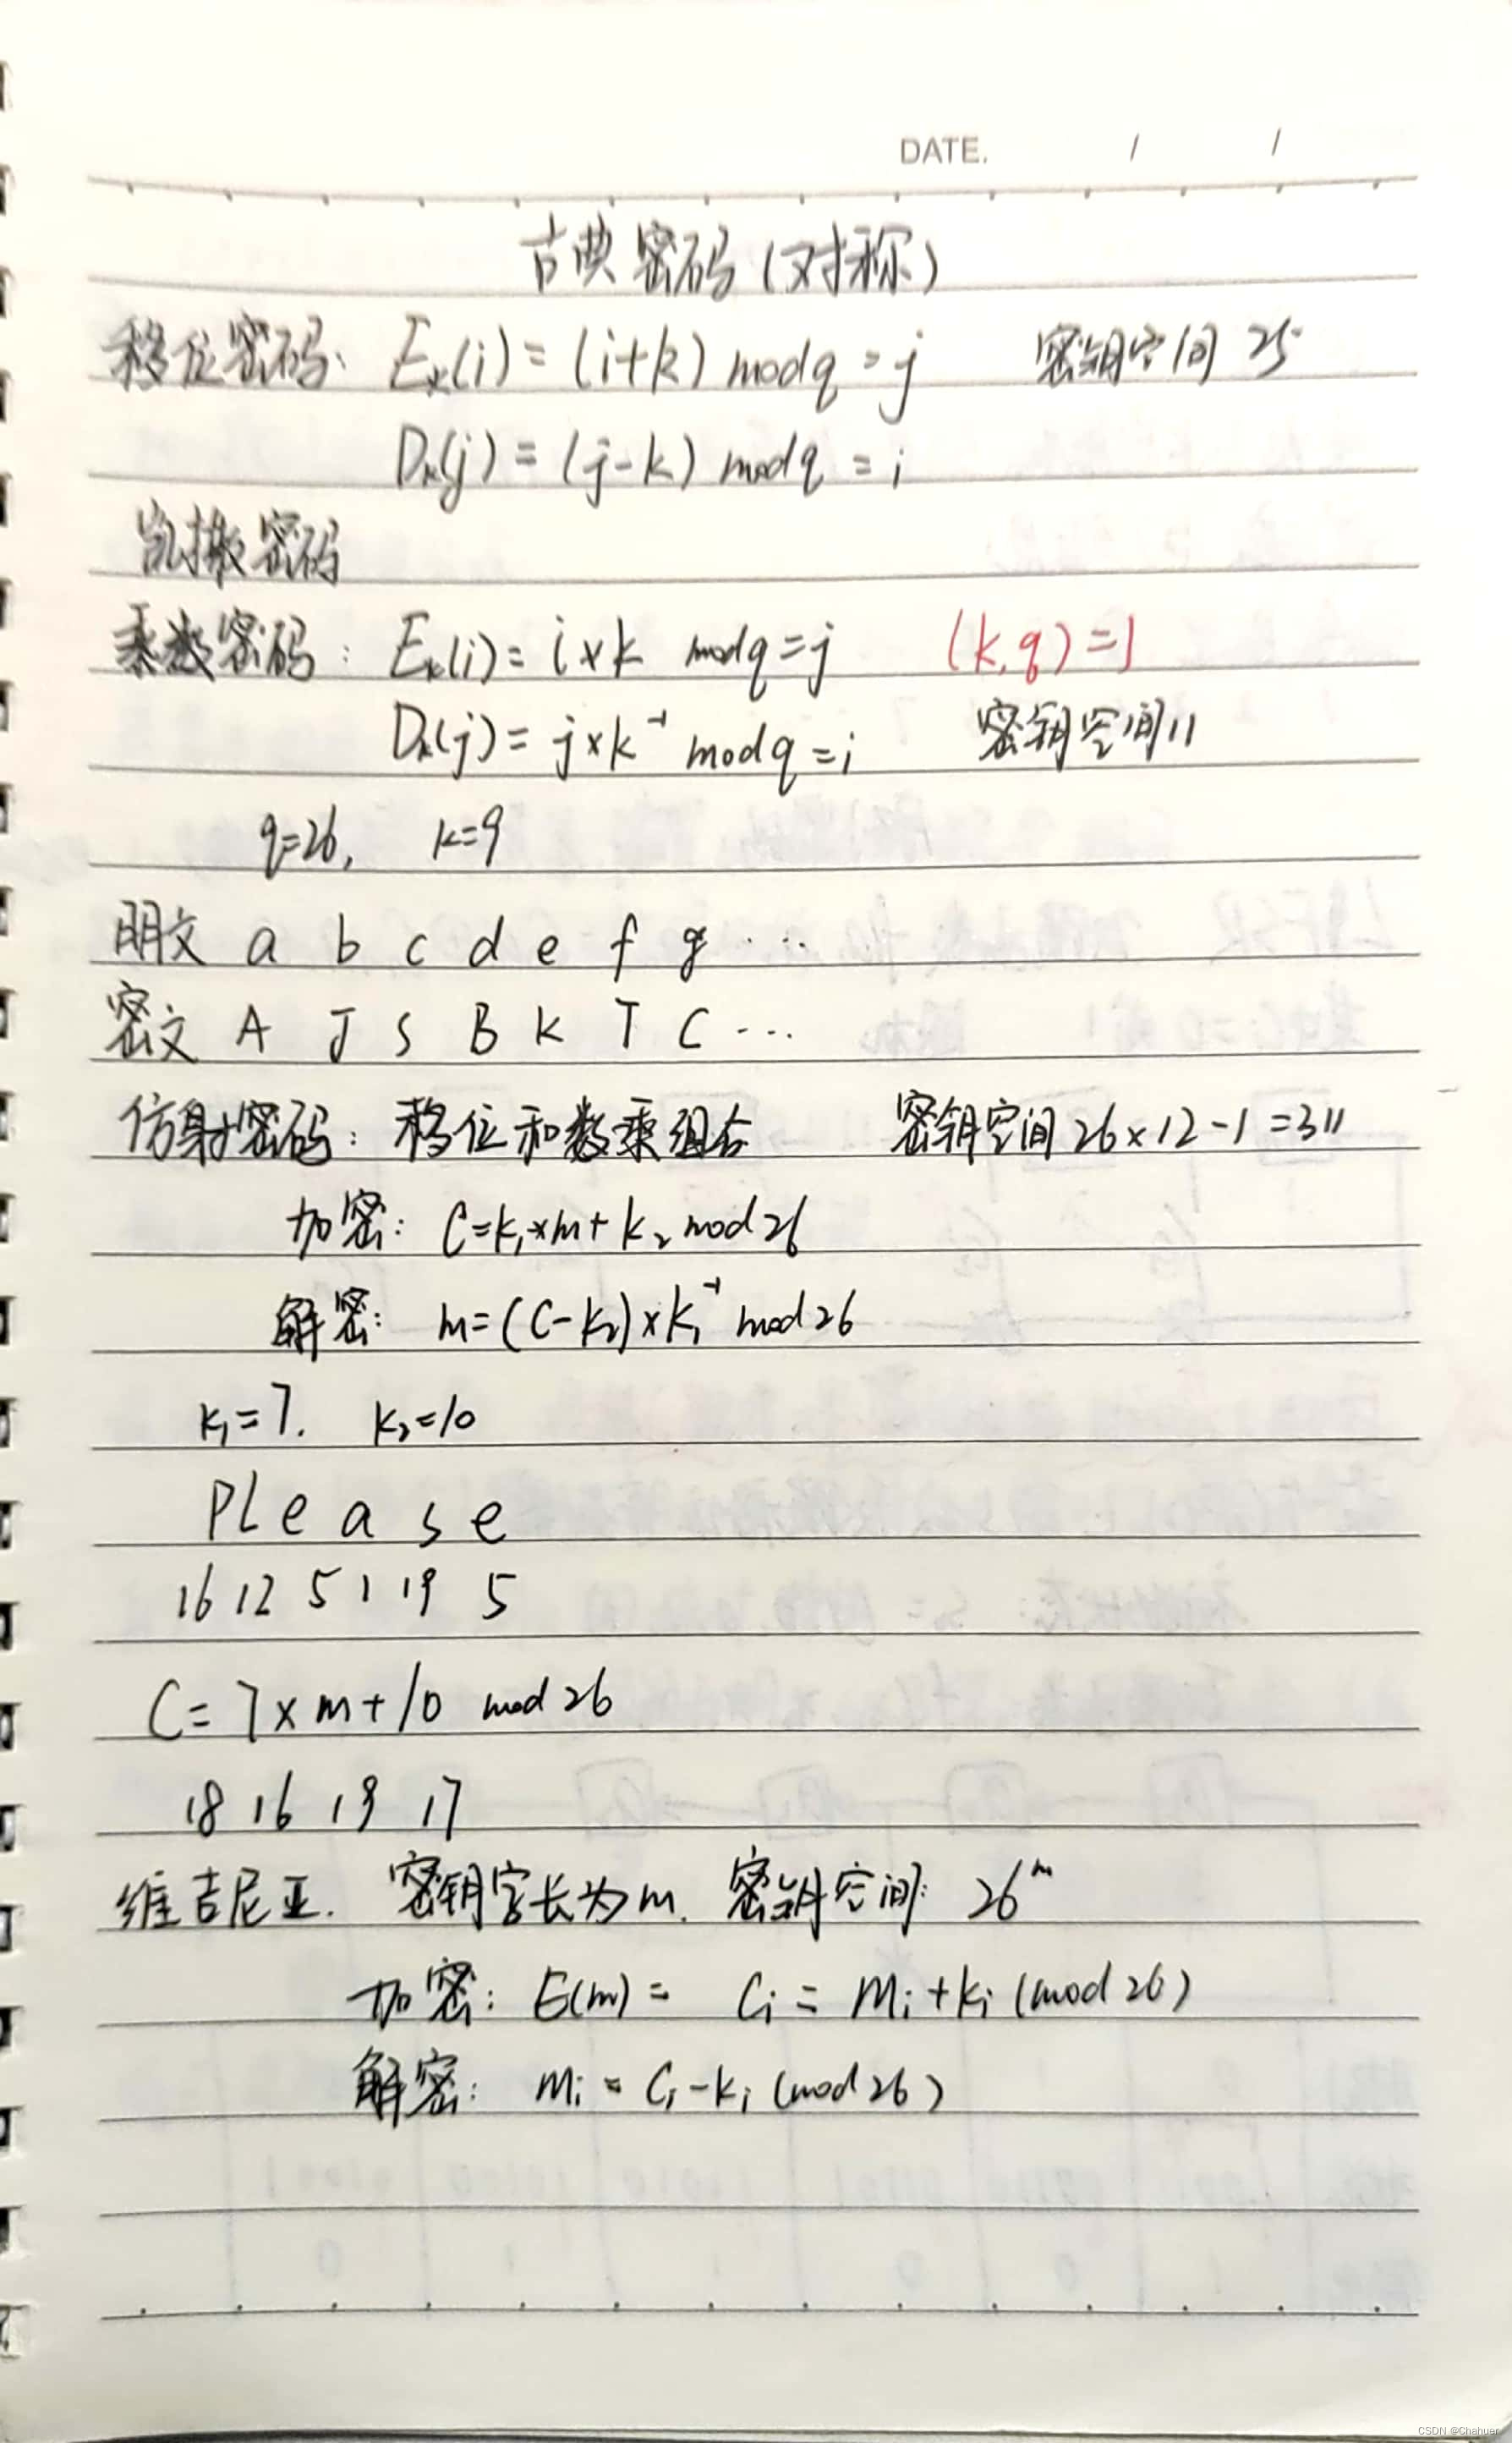 DATE. / /
古典密码(对称)
移位密码: Eₖ(i) = (i+k) mod q = j 密钥空间 25
Dₖ(j) = (j-k) mod q = i
凯撒密码
乘数密码: Eₖ(i) = i×k mod q = j (k,q)=1
Dₖ(j) = j×k⁻¹ mod q = i 密钥空间11
q=26, k=9
明文 a b c d e f g ...
密文 A J S B K T C ...
仿射密码: 移位和数乘组合 密钥空间 26×12-1=311
加密: C=k₁×m+k₂ mod 26
解密: m=(C-k₂)×k₁⁻¹ mod 26
k₁=7. k₂=10
PLease
16 12 5 1 19 5
C=7×m+10 mod 26
18 16 19 17
维吉尼亚. 密钥字长为m. 密钥空间: 26ᵐ
加密: E(m) = Cᵢ = Mᵢ+kᵢ (mod 26)
解密: mᵢ = Cᵢ-kᵢ (mod 26)
CSDN @Chahuer